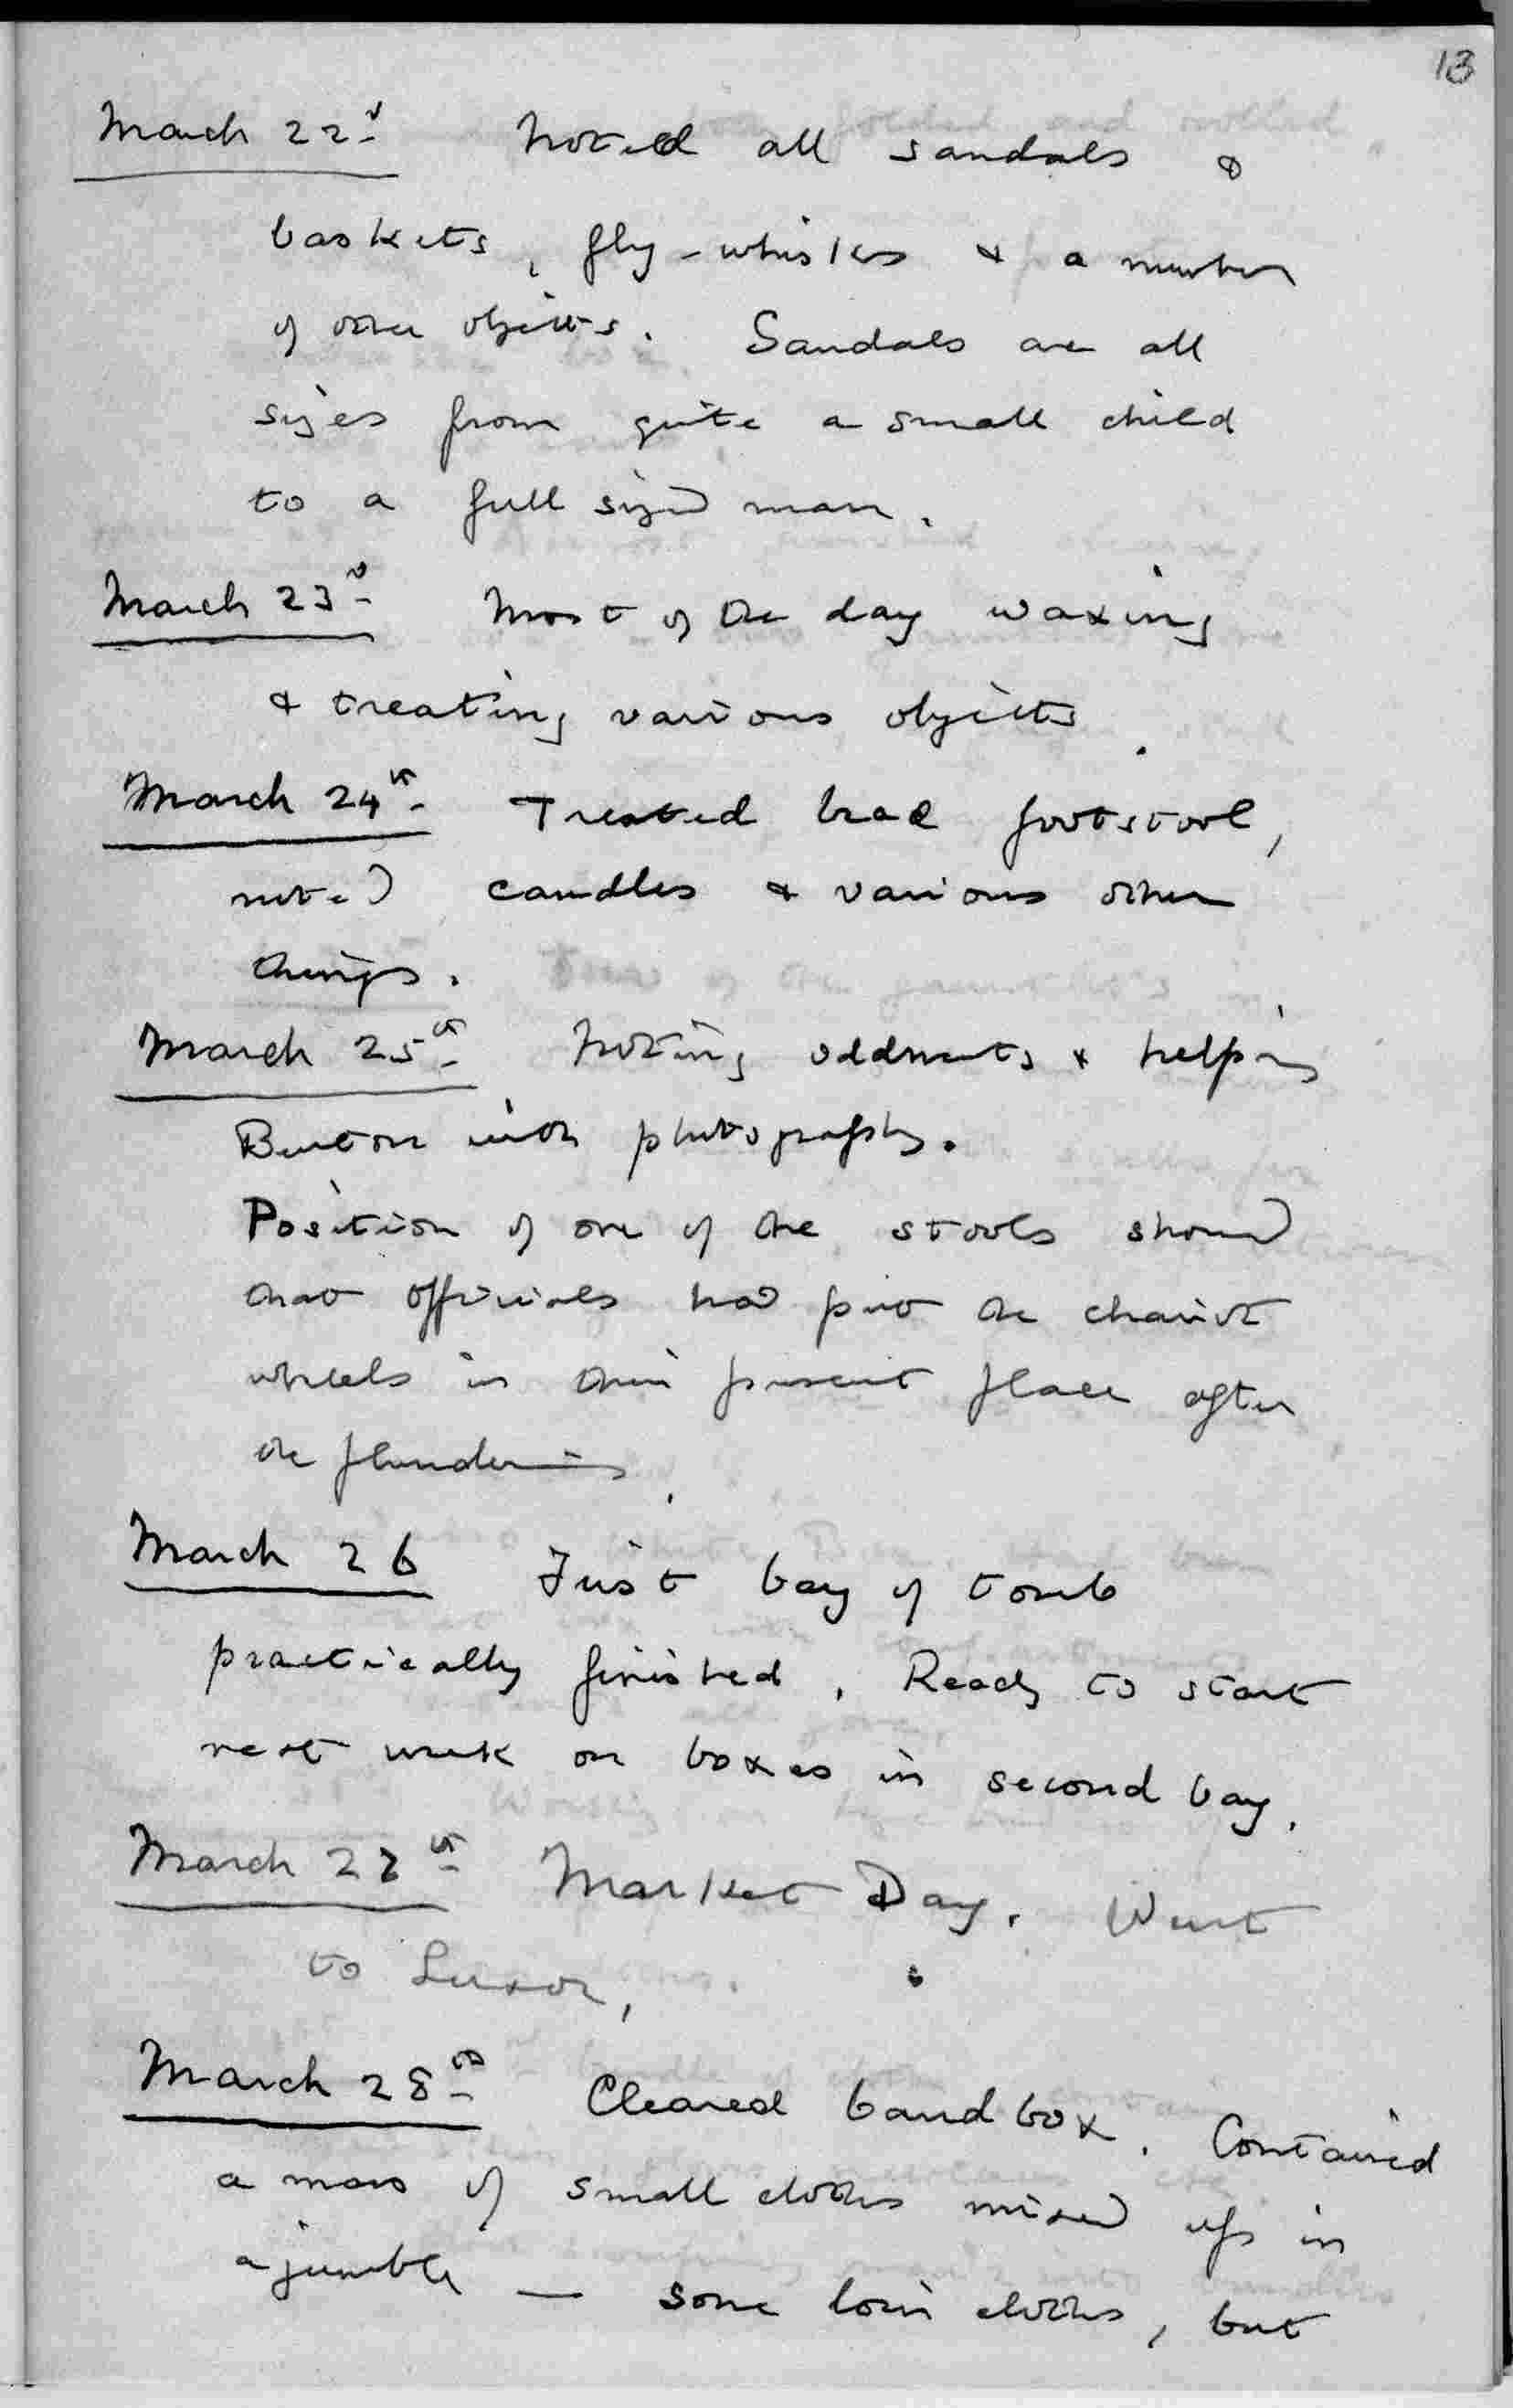 13
March 22d Noted all sandals &
baskets, fly-whisks & a number
of other objects. Sandals are all
sizes from quite a small child
to a full sized man.
March 23d Most of the day waxing
& treating various objects.
March 24th Treated bead footstool,
noted candles & various other
things.
March 25th Noting oddments & helping
Burton with photographs.
Position of one of the stools showed
that officials had put the chariot
wheels in their present place after
the plundering.
March 26 First bay of tomb
practically finished. Ready to start
next week on boxes in second bay.
March 27th Market Day. Went
to Luxor.
March 28th Cleared band box. Contained
a mass of small cloths mixed up in
a jumble — some loin cloths, but